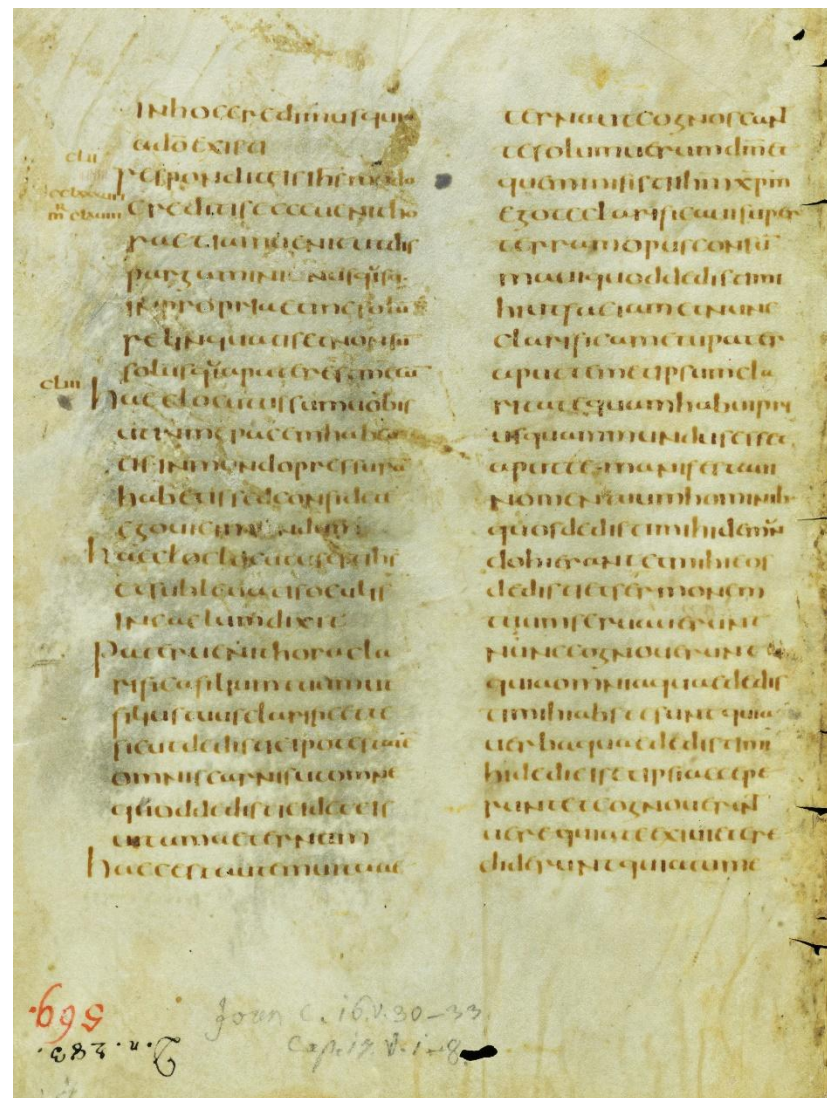 in hoc credimus quia
a dō existi
clii
respondit eis ihs modo
creditis ecce uenit ho
ra et iam uenit ut dis
pargamini
in propria et me solū
relinquatis et non sū
solus quia pater est mecū
cliii
haec locutus sum uobis
ut in me pacem habe
atis in mundo pressurā
habetis sed confidete
ego uici mundum
haec
et subleuatis oculis
in caelum dixit
pater uenit hora cla
rifica filium tuum ut
filius tuus clarificet te
sicut dedisti ei potestatē
omnis carnis ut omne
quod dedisti ei det eis
uitam aeternam
haec est autem uita ae
terna ut cognoscant
te solum uerum dm et
quem misisti ihm xpm
ego te clarificaui super
terram opus consū
maui quod dedisti mi
hi ut faciam et nunc
clarifica me tu pater
aput temetipsum cla
ritate quam habui pri
usquam mundus esset
aput te manifestaui
nomen tuum hominib
quos dedisti mihi de mū
do tui erant et mihi eos
dedisti et sermonem
tuum seruauerunt
nunc cognouerunt
quia omnia quae dedis
ti mihi abs te sunt quia
uerba quae dedisti mi
hi dedi eis et ipsi accepe
runt et cognouerunt
uere quia a te exiui et cre
diderunt quia tu me
569.
D. n. 283.
Joan c. 16. v. 30-33
Cap. 17. v. 1-8